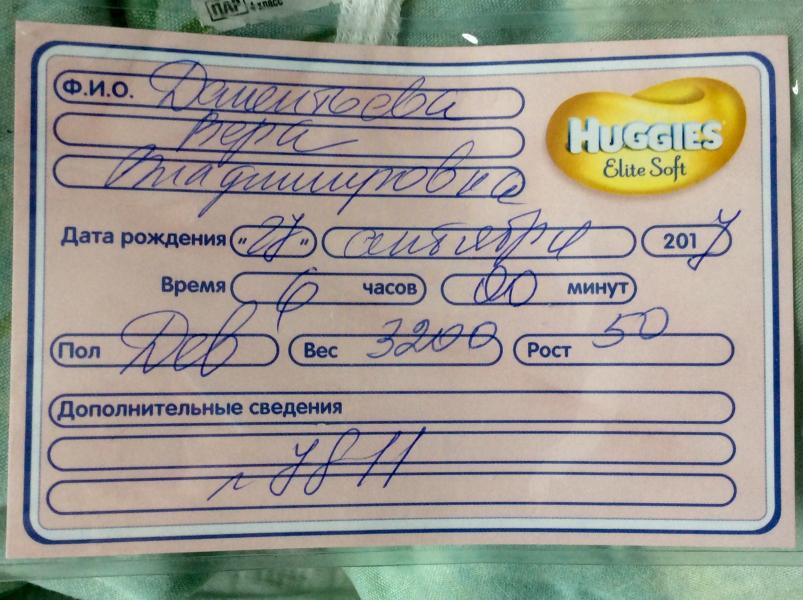 ПАР 4 класс
Ф.И.О. Дементьева
Вера
Владимировна
HUGGIES
Elite Soft
Дата рождения "27" сентября 2017
Время 6 часов 00 минут
Пол Дев Вес 3200 Рост 50
Дополнительные сведения
7811